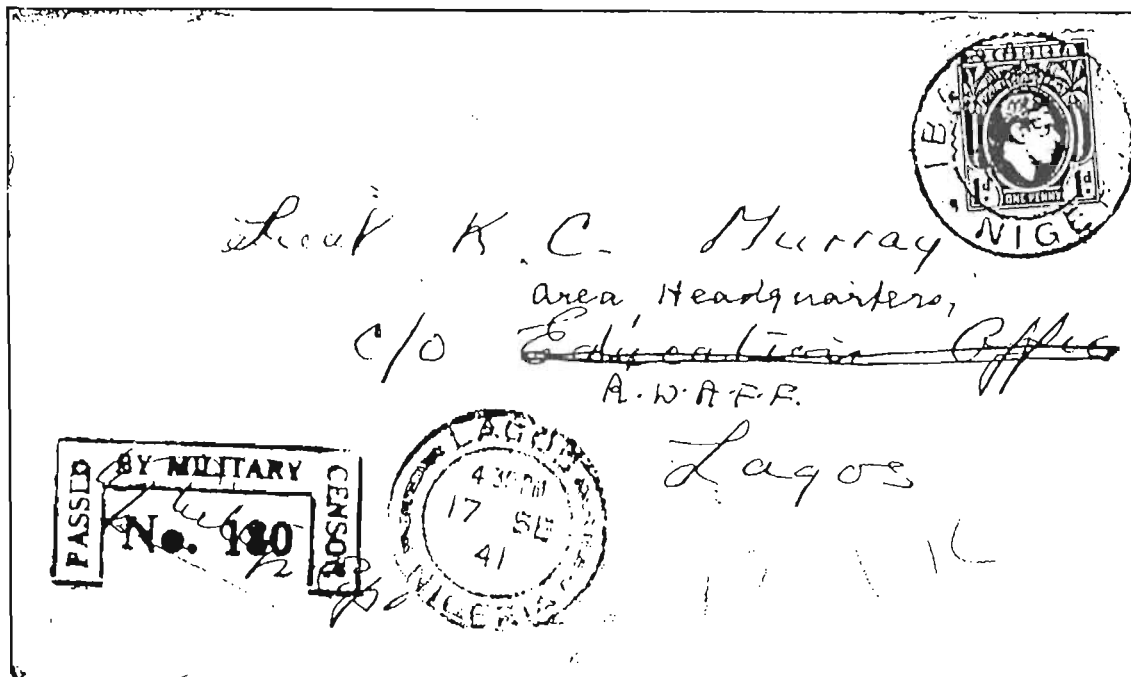 NIGERIA
1d 1d
ONE PENNY
NIGE
Lieut K. C. Murray
Area Headquarters,
c/o Education Office
R.W.A.F.F.
Lagos
PASSED BY MILITARY CENSOR
No. 120
LAGOS
4 30 PM
17 SE
41
NIGERIA